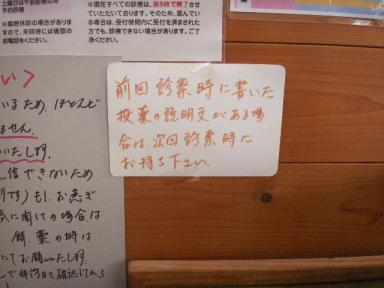 土曜日は午前診察のみ
予約診察
※臨時休診の場合があり
ますので、来院時には確認の
お電話をください。
※現在すべての診療は、夜8時で終了させ
ていただいております。そのため、混んでい
る場合は、受付時間内に受付を済まされた
方でも、診察できない場合があります。
ご了承ください。
前回診察時に書いた
投薬の説明文がある場
合は、次回診察時に
お持ち下さい。
いるため、ほとんど
ません。
いたします。
信できないため
もし、お急ぎ
に関しての場合は
餌、薬の時は
にてお願いたします。